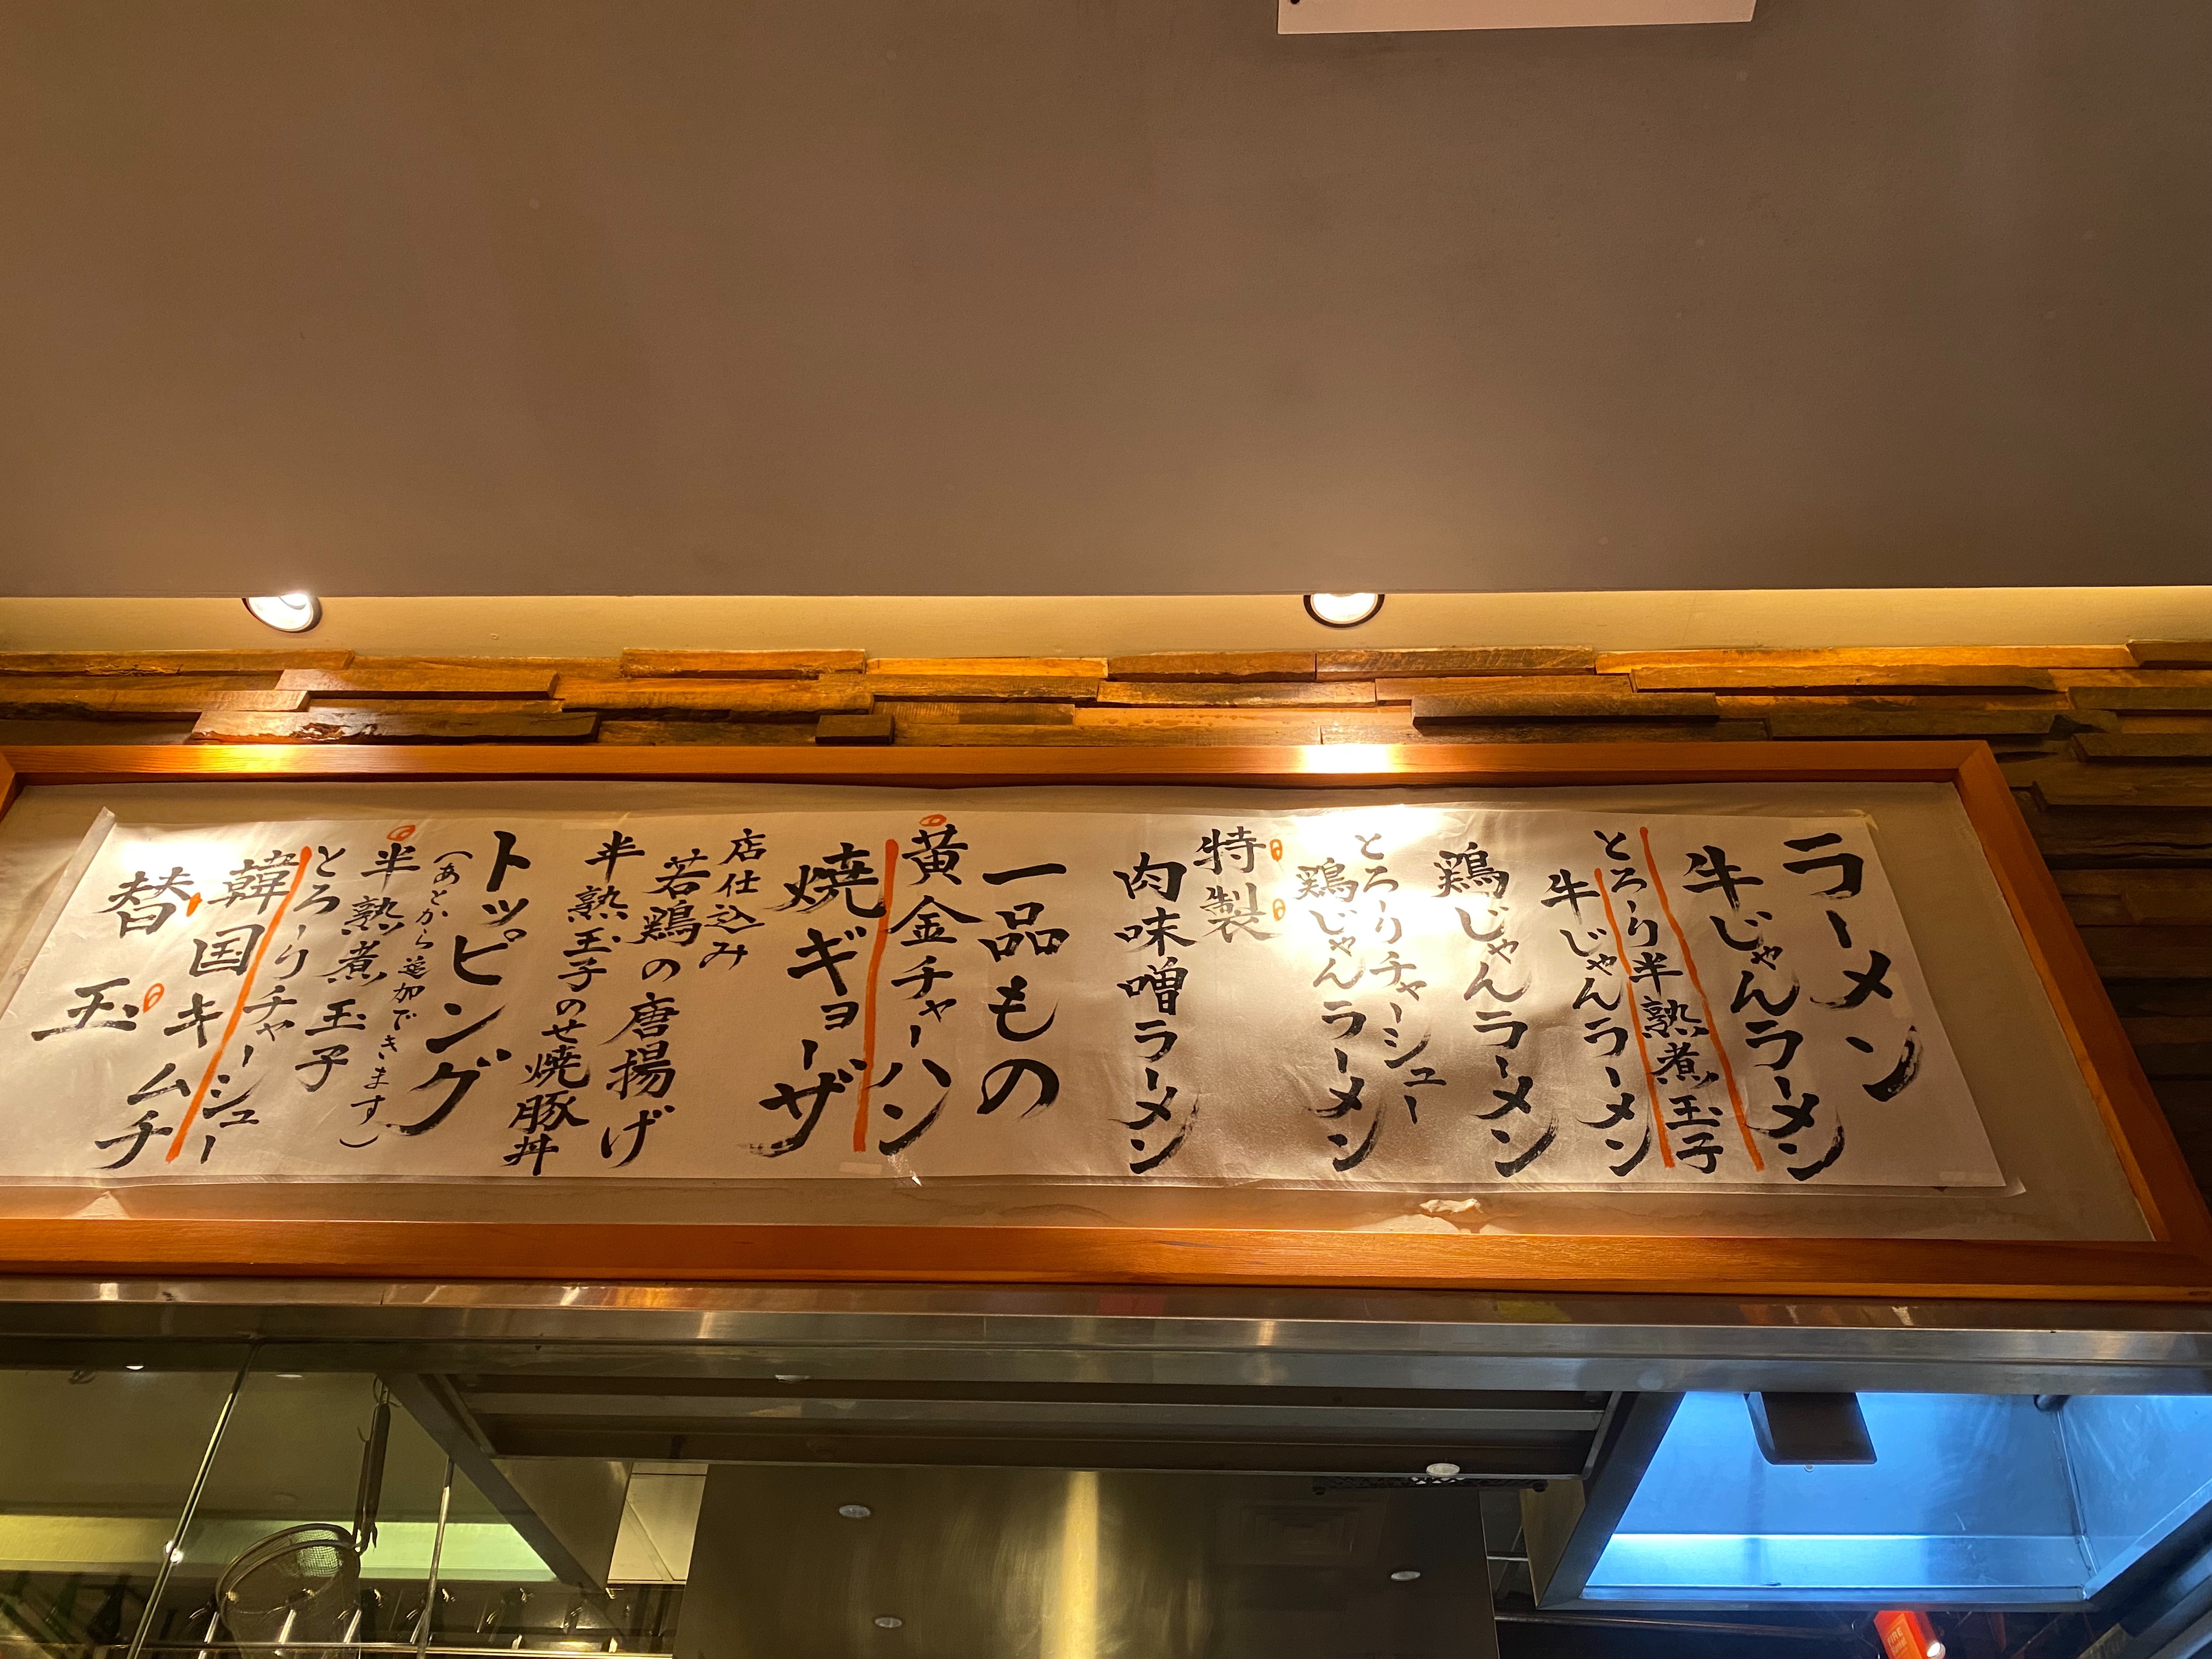 ラーメン
牛じゃんラーメン
とろーり半熟煮玉子
牛じゃんラーメン
鶏じゃんラーメン
とろーりチャーシュー
鶏じゃんラーメン
特製
肉味噌ラーメン
一品もの
黄金チャーハン
焼ギョーザ
店仕込み
若鶏の唐揚げ
半熟玉子のせ焼豚丼
トッピング
（あとから追加できます）
半熟煮玉子
とろーりチャーシュー
韓国キムチ
替玉
FIRE